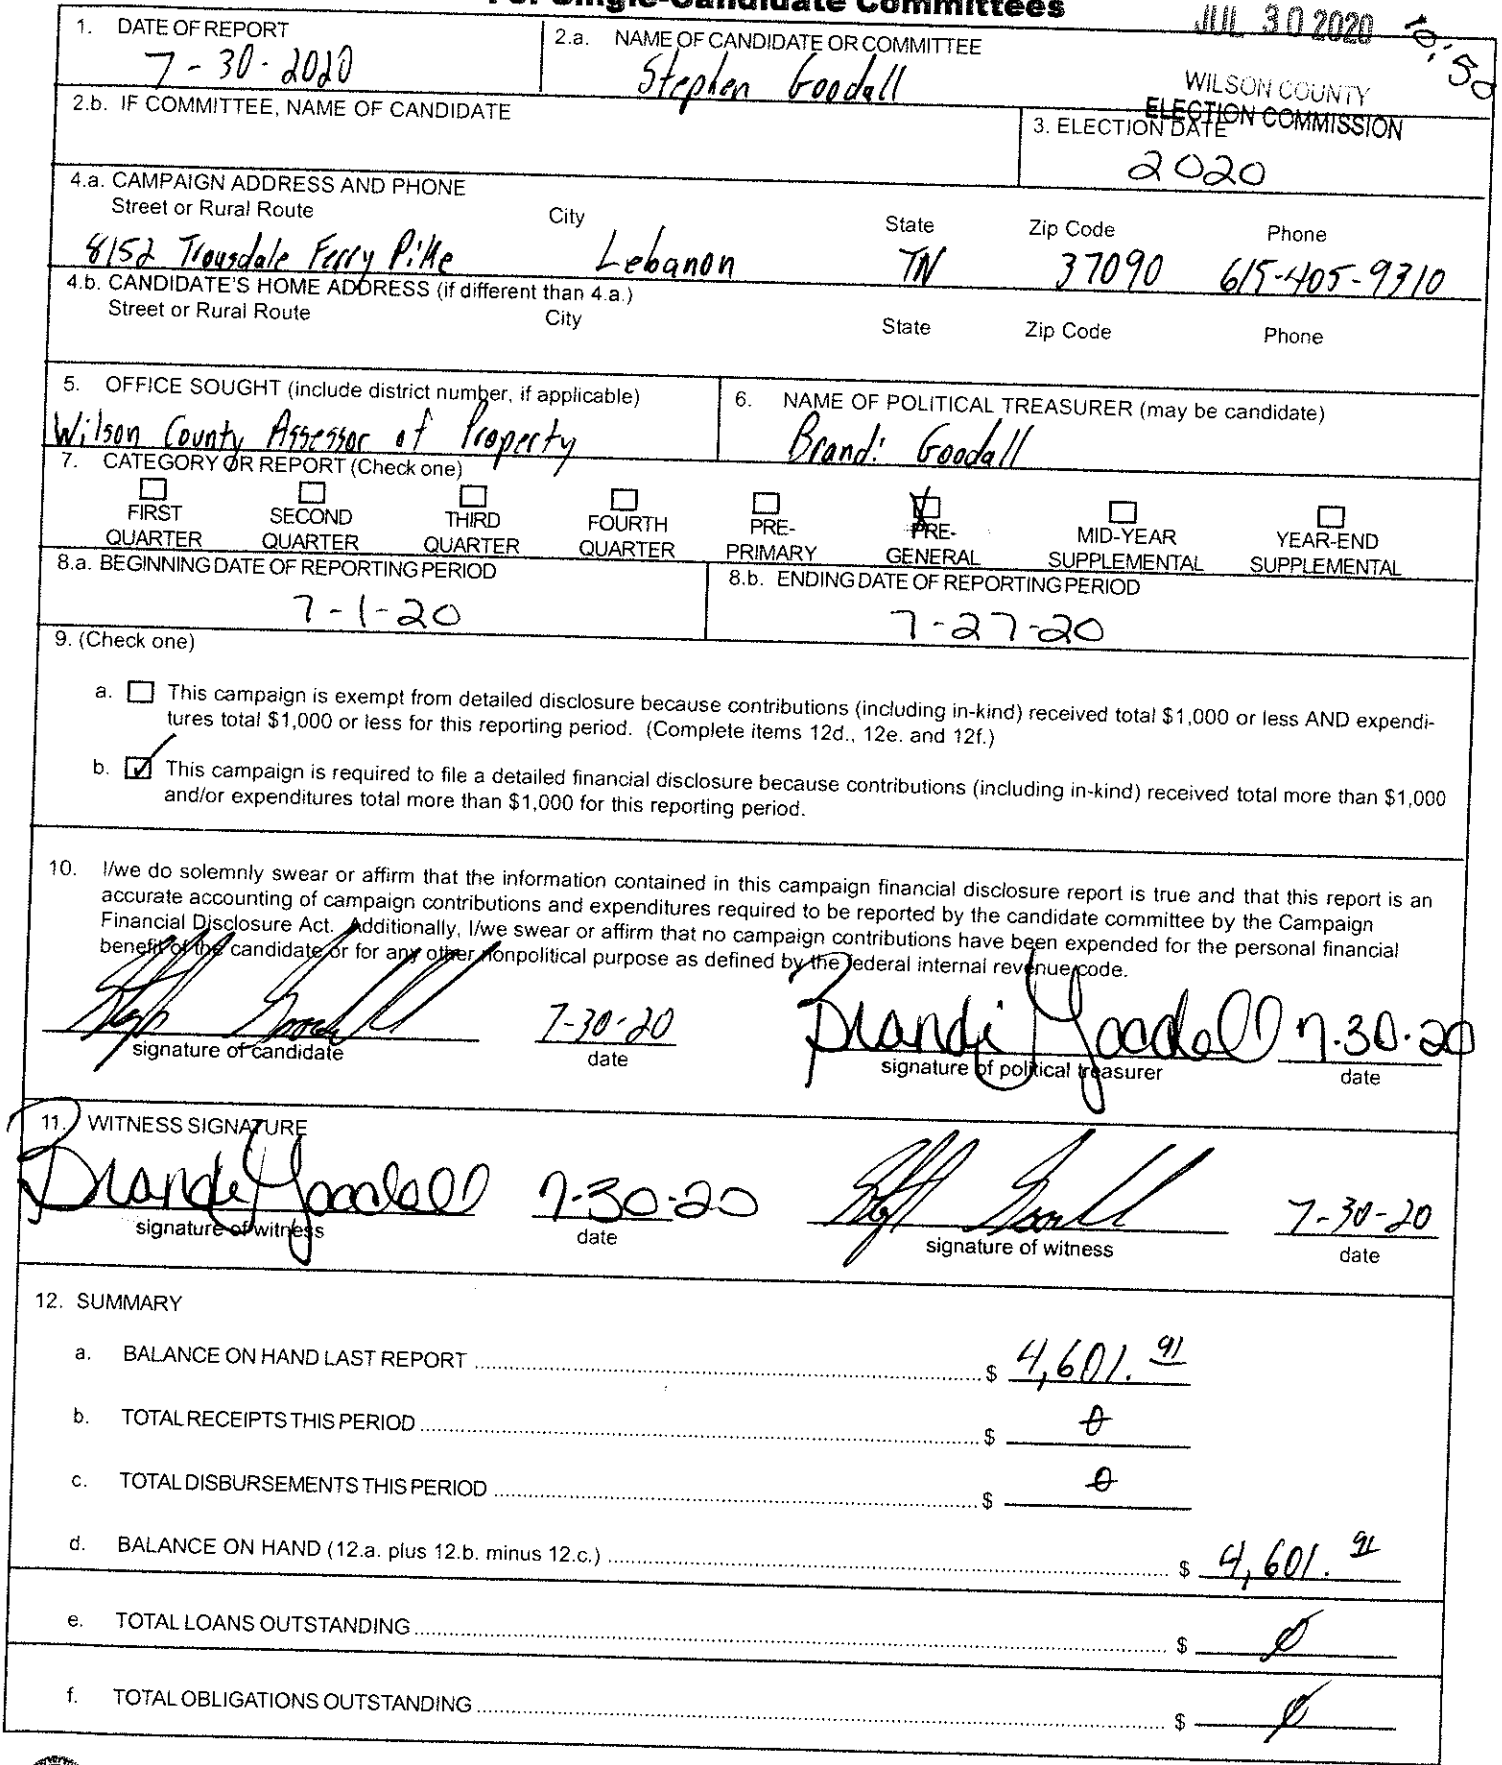 For Single-Candidate Committees
JUL 30 2020
10:50
WILSON COUNTY
ELECTION COMMISSION
1. DATE OF REPORT
7-30-2020
2.a. NAME OF CANDIDATE OR COMMITTEE
Stephen Goodall
2.b. IF COMMITTEE, NAME OF CANDIDATE
3. ELECTION DATE
2020
4.a. CAMPAIGN ADDRESS AND PHONE
Street or Rural Route City State Zip Code Phone
8152 Trousdale Ferry Pike Lebanon TN 37090 615-405-9310
4.b. CANDIDATE'S HOME ADDRESS (if different than 4.a.)
Street or Rural Route City State Zip Code Phone
5. OFFICE SOUGHT (include district number, if applicable)
Wilson County Assessor of Property
6. NAME OF POLITICAL TREASURER (may be candidate)
Brandi Goodall
7. CATEGORY OR REPORT (Check one)
FIRST QUARTER
SECOND QUARTER
THIRD QUARTER
FOURTH QUARTER
PRE-PRIMARY
PRE-GENERAL
MID-YEAR SUPPLEMENTAL
YEAR-END SUPPLEMENTAL
8.a. BEGINNING DATE OF REPORTING PERIOD
7-1-20
8.b. ENDING DATE OF REPORTING PERIOD
7-27-20
9. (Check one)
a. This campaign is exempt from detailed disclosure because contributions (including in-kind) received total $1,000 or less AND expendi-
tures total $1,000 or less for this reporting period. (Complete items 12d., 12e. and 12f.)
b. This campaign is required to file a detailed financial disclosure because contributions (including in-kind) received total more than $1,000
and/or expenditures total more than $1,000 for this reporting period.
10. I/we do solemnly swear or affirm that the information contained in this campaign financial disclosure report is true and that this report is an
accurate accounting of campaign contributions and expenditures required to be reported by the candidate committee by the Campaign
Financial Disclosure Act. Additionally, I/we swear or affirm that no campaign contributions have been expended for the personal financial
benefit of the candidate or for any other nonpolitical purpose as defined by the federal internal revenue code.
7-30-20 Brandi Goodall 7-30-20
signature of candidate date signature of political treasurer date
11. WITNESS SIGNATURE
Brandi Goodall 7-30-20 7-30-20
signature of witness date signature of witness date
12. SUMMARY
a. BALANCE ON HAND LAST REPORT $ 4,601.91
b. TOTAL RECEIPTS THIS PERIOD $ 0
c. TOTAL DISBURSEMENTS THIS PERIOD $ 0
d. BALANCE ON HAND (12.a. plus 12.b. minus 12.c.) $ 4,601.91
e. TOTAL LOANS OUTSTANDING $ 0
f. TOTAL OBLIGATIONS OUTSTANDING $ 0